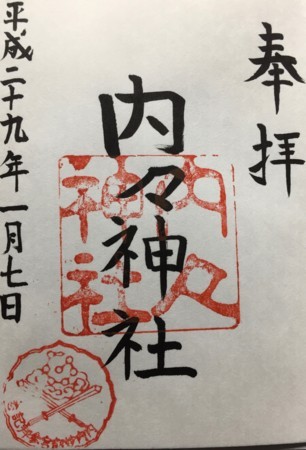 奉拝
内々神社
内々神社
平成二十九年一月七日